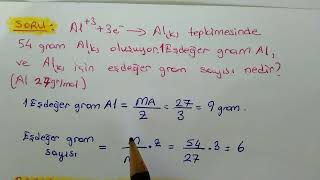 SORU: Al⁺³ + 3e⁻ → Al(k) tepkimesinde
54 gram Al(k) oluşuyor. 1 Eşdeğer gram Al,
ve Al(k) için eşdeğer gram sayısı nedir?
(Al 27 g/mol)
1 Eşdeğer gram Al = MA/Z = 27/3 = 9 gram.
Eşdeğer gram sayısı = n/ . z = 54/27 . 3 = 6